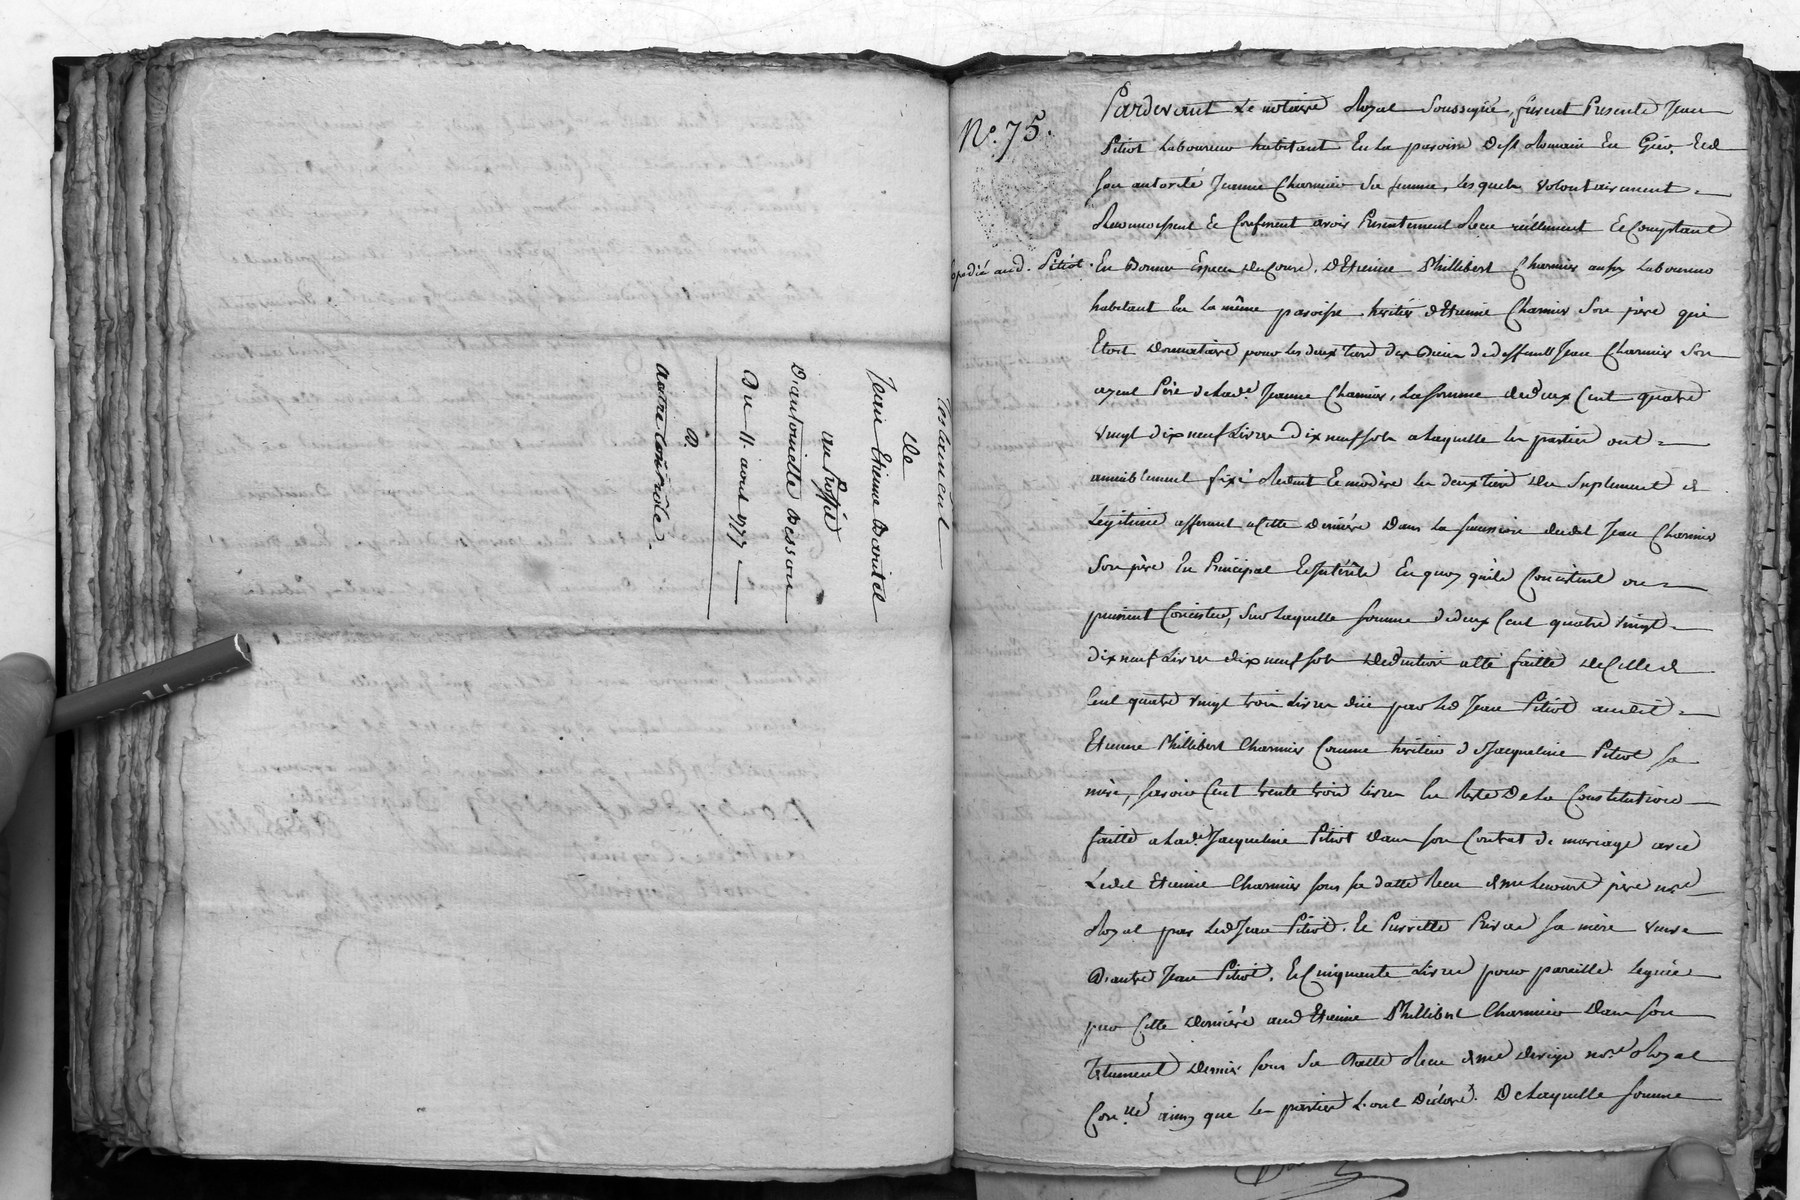 Testament
De
Jean Etienne
au Proffit
D'antoinette Besson
Du 11. avril 1777
N.º 75.
expedié aud. Pitiot.
Pardevant Le notaire Royal Soussigné, furent Presents Jean
Pitiot Laboureur habitant En La paroisse De St Romain En Gier. Et de
son autorité Jeanne Charmier Sa femme, Lesquels volontairement
Reconnoissent Et Confessent avoir Presentement Recu réellement Et Comptant
En Bonnes Especes de Cours, d'Etienne Phillibert Charmier aussy Laboureur
habitant En La même paroisse heritier d'Etienne Charmier Son père qui
Etoit Donnataire pour Les deux tiers des Biens de deffunt Jean Charmier Son
ayeul Père de Lad.e Jeanne Charmier, La somme de deux Cent quatre
vingt dix neuf Livres dix neuf sols a Laquelle Les parties ont
amiablement fixé Reduit Et modéré Les deux tiers Du Suplement de
Legitime afferant a Cette Derniére Dans La succession dudit Jean Charmier
Son père En Principal Et Interêts En quoy qu'ils Consistent ou
puissent Consister, Sur Laquelle somme de deux Cent quatre vingt
dix neuf Livres dix neuf sols Deduction a été faitte de Celle de
Cent quatre vingt trois Livres düe par Led Jean Pitiot audit
Etienne Phillibert Charmier Comme heritier de Jacqueline Pitiot sa
mère, savoir Cent trente trois Livres En Reste De La Constitution
faitte a Lad.e Jacqueline Pitiot Dans son Contrat de mariage avec
Ledit Etienne Charmier sous sa datte Recu père n.re
Royal par Led Jean Pitiot. Et Pierrette sa mère veuve
D'autre Jean Pitiot. Et Cinquante Livres pour pareille Leguée
par Cette Derniére aud Etienne Phillibert Charmier Dans son
Testament Dernier sous Sa Datte Recu n.re Royal
ainsy que Les parties L'ont Déclaré. De Laquelle somme